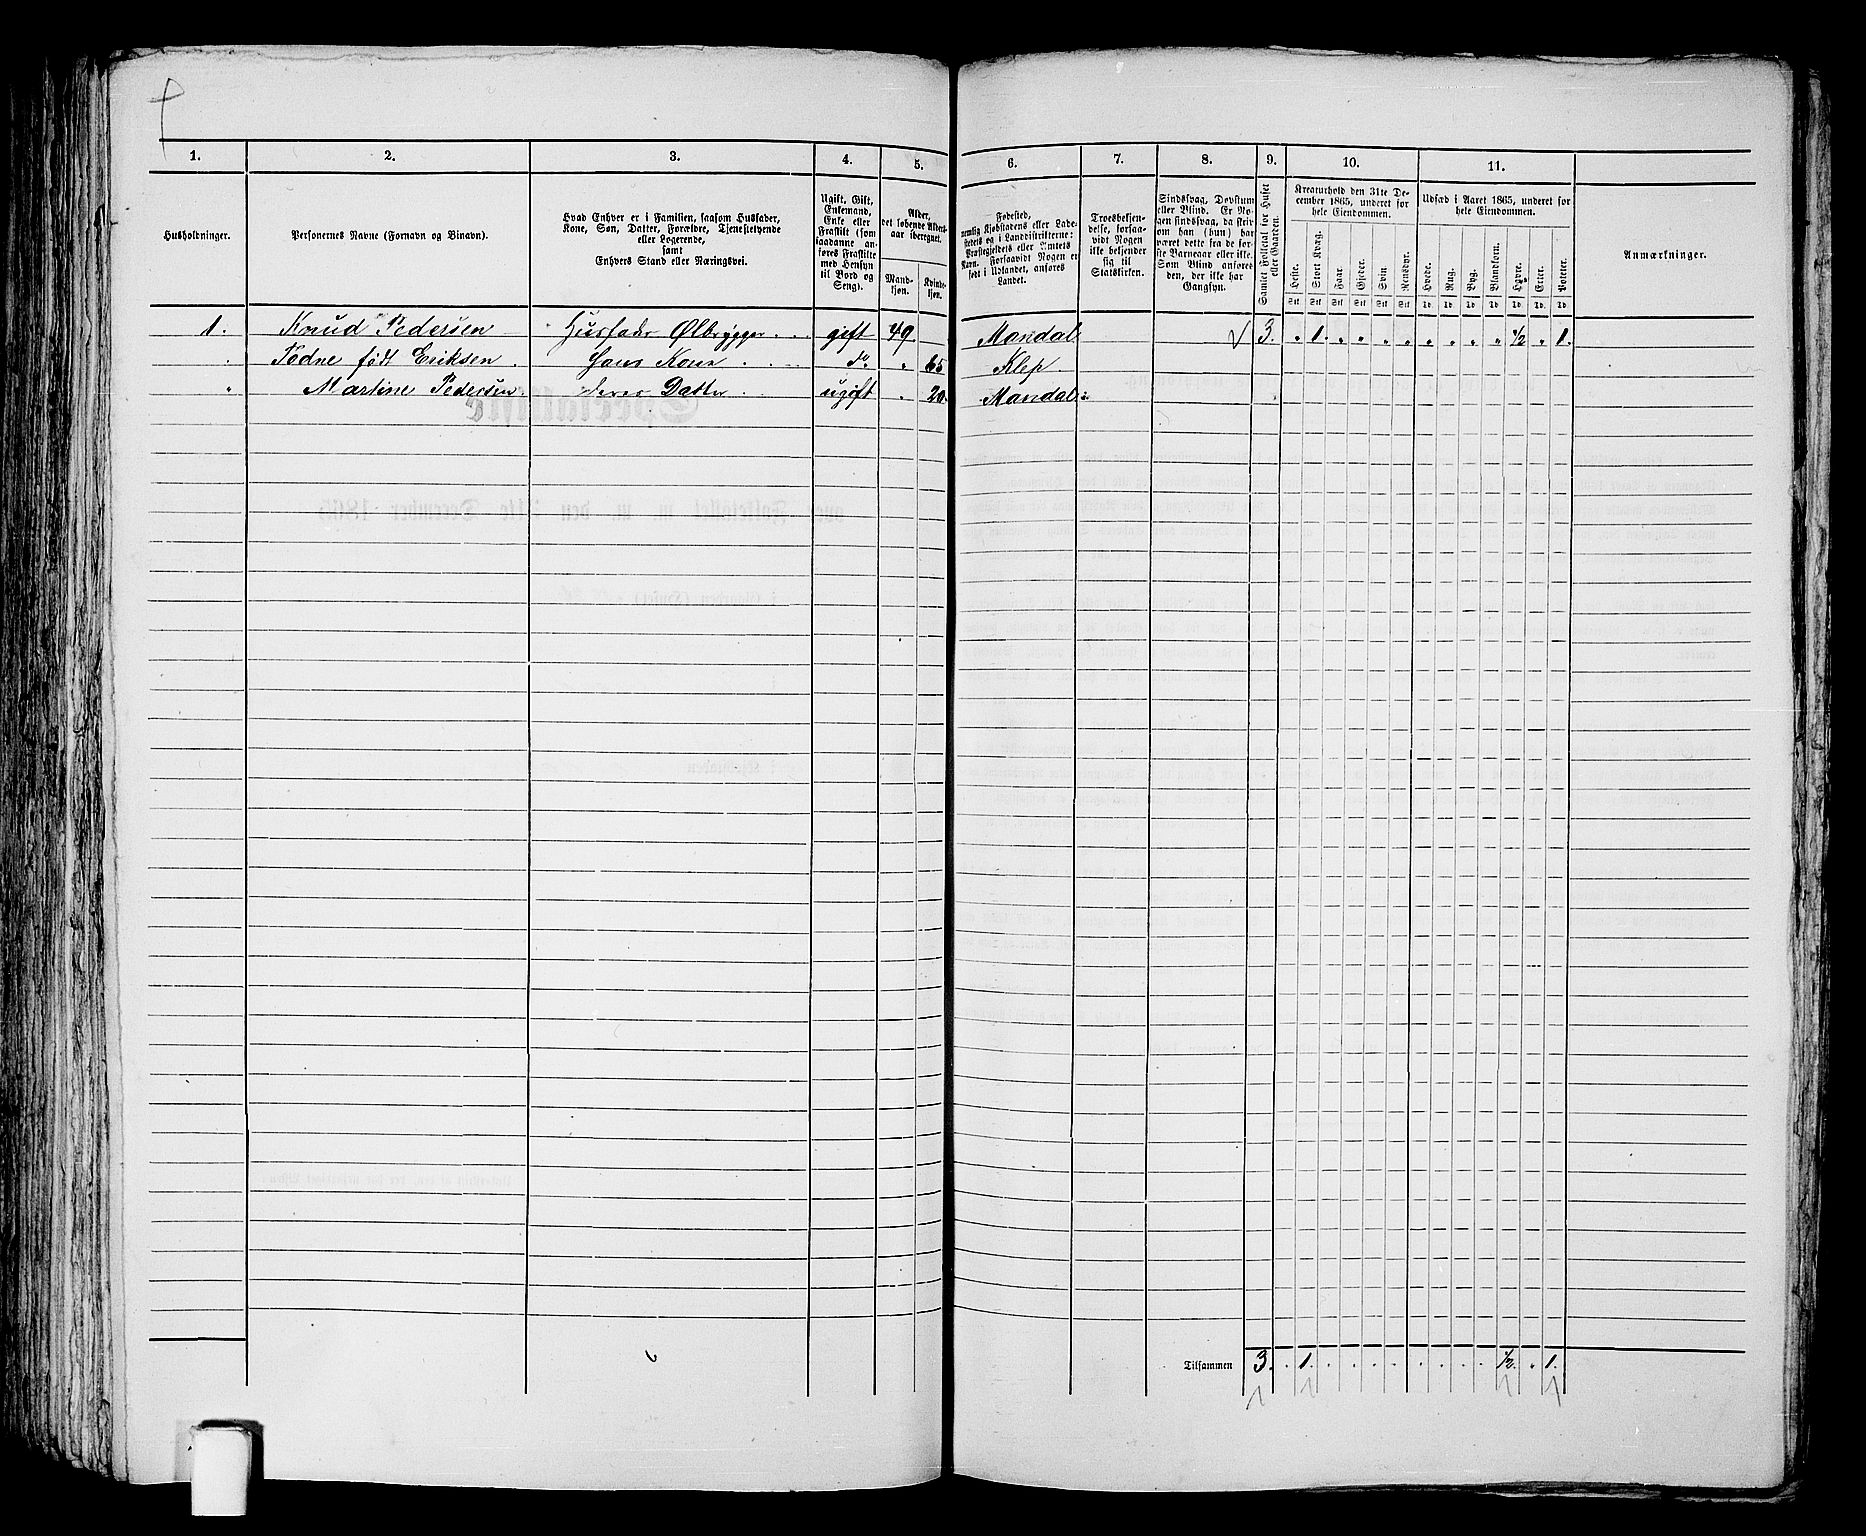 1. 2. 3. 4. 5. 6. 7. 8. 9. 10. 11.
Husholdninger.
Personernes Navne (Fornavn og Binavn).
Hvad Enhver er i Familien, saasom Husfader,
Kone, Søn, Datter, Forældre, Tjenestetyende
eller Logerende,
samt
Enhvers Stand eller Næringsvei.
Ugift, Gift,
Enkemand,
Enke eller
Fraskilt (som
saadanne an-
føres Fraskilte
med Hensyn
til Bord og
Seng).
Alder,
det løbende Alders-
aar iberegnet.
Mand-
kjøn.
Kvinde-
kjøn.
Fødested,
nemlig Kjøbstadens eller Lade-
stedets og i Landdistrikterne:
Præstegjeldets eller Amtets
Navn. Forsaavidt Nogen er
født i Udlandet, anføres
Landet.
Troesbekjen-
delse, forsaa-
vidt Nogen
ikke bekjender
sig til
Statskirken.
Sindssvag, Døvstum
eller Blind. Er No-
gen sindssvag, da skriv
om han (hun) har
været dette fra de før-
ste Barneaar eller ikke.
Som Blind anføres
den, der ikke har
Gangsyn.
Samlet Folketal for Huset
eller Gaarden.
Kreaturhold den 31te De-
cember 1865, underet for
hele Eiendommen.
Heste. Stort Kvæg. Faar. Gjeder. Svin. Rensdyr.
Stk Stk Stk Stk Stk Stk
Udsæd i Aaret 1865, underet for
hele Eiendommen.
Hvede. Rug. Byg. Blandkorn. Havre. Erter. Poteter.
Td Td Td Td Td Td Td
Anmærkninger.
1. Knud Pedersen Husfader Ølbrygger gift 49. Mandal 3. " 1. " " " " " " " " 1/2 " 1.
Tødne født Eriksen. Hans Kone do " 65 Klep
" Martine Pedersen. deres Datter ugift " 20. Mandal
Tilsammen 3. 1. 1/2. 1.